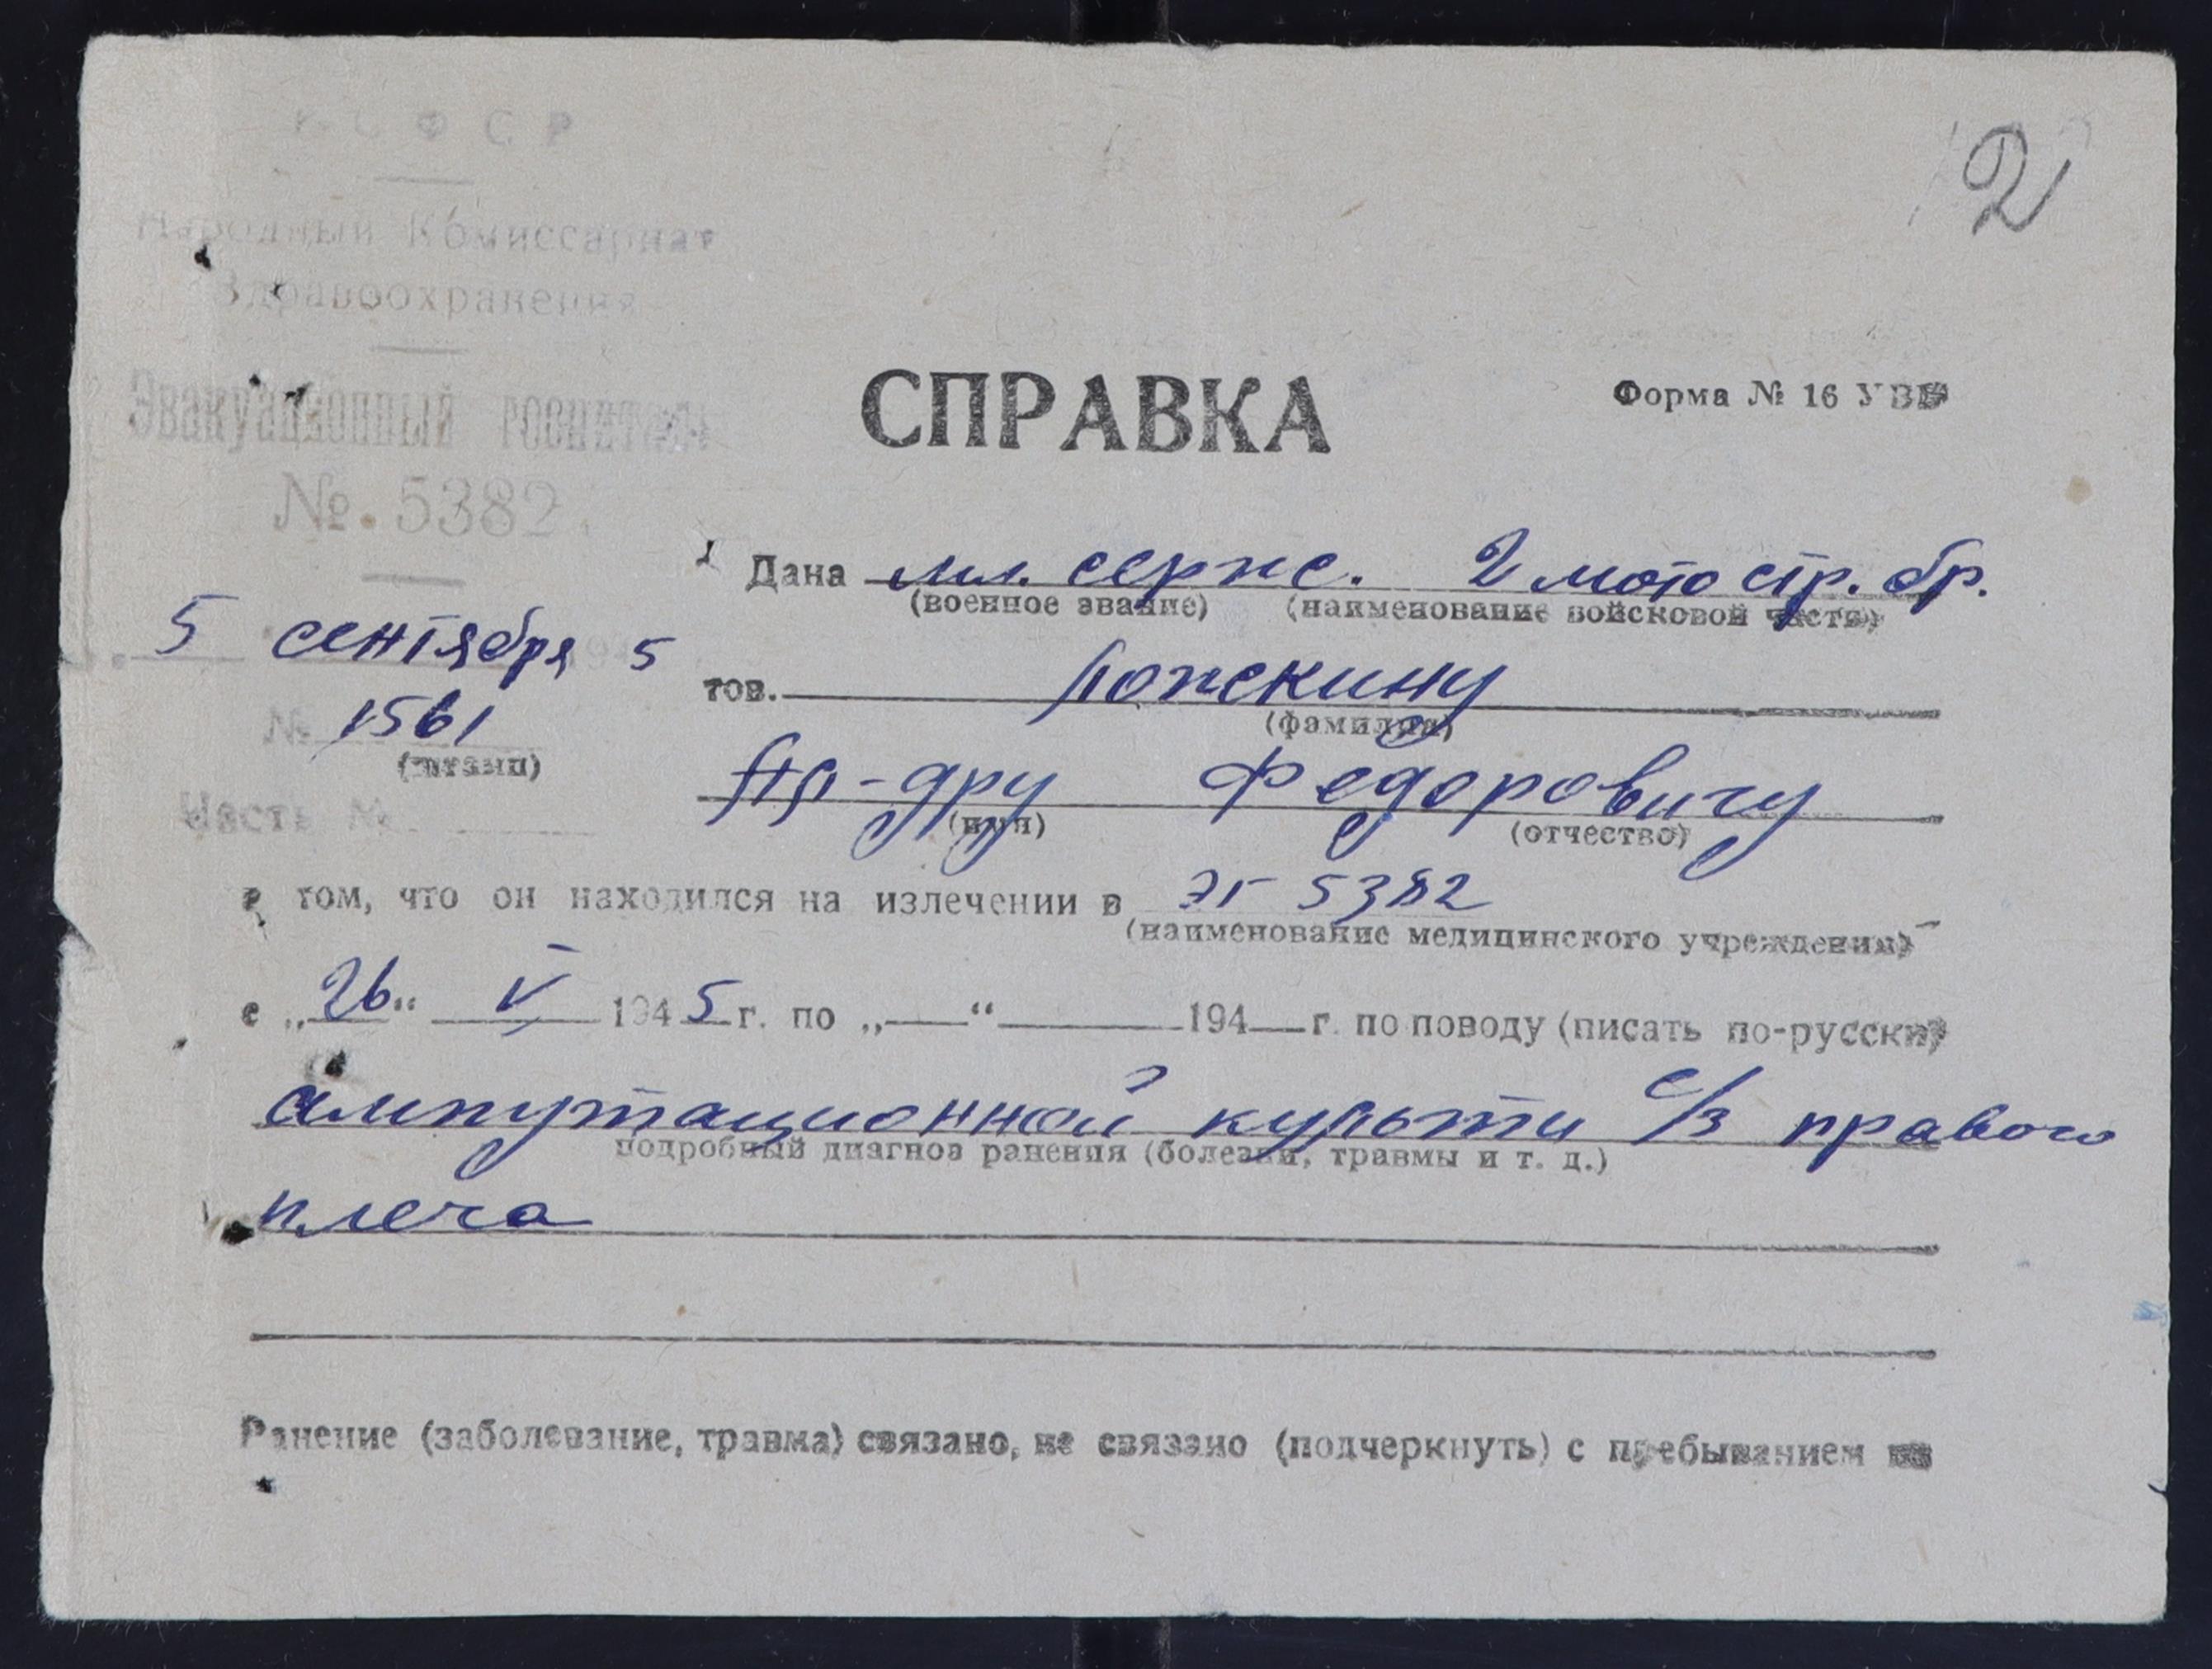 РСФСР
2
Народный Комиссариат
Здравоохранения
Эвакуационный госпиталь
СПРАВКА
Форма № 16 УВГ
№ 5382
Дана мл. серж. 2 мото стр. бр.
(военное звание) (наименование войсковой части)
5 сентября 1945
тов. Ложкину
(фамилия)
№ 1561
(штамп)
Ал-дру Федоровичу
(имя) (отчество)
Часть №
в том, что он находился на излечении в ЭГ 5382
(наименование медицинского учреждения)
с „26“ V 1945 г. по „—“ 194— г. по поводу (писать по-русски)
ампутационной культи с/з правого
подробный диагноз ранения (болезни, травмы и т. д.)
плеча
Ранение (заболевание, травма) связано, не связано (подчеркнуть) с пребыванием на